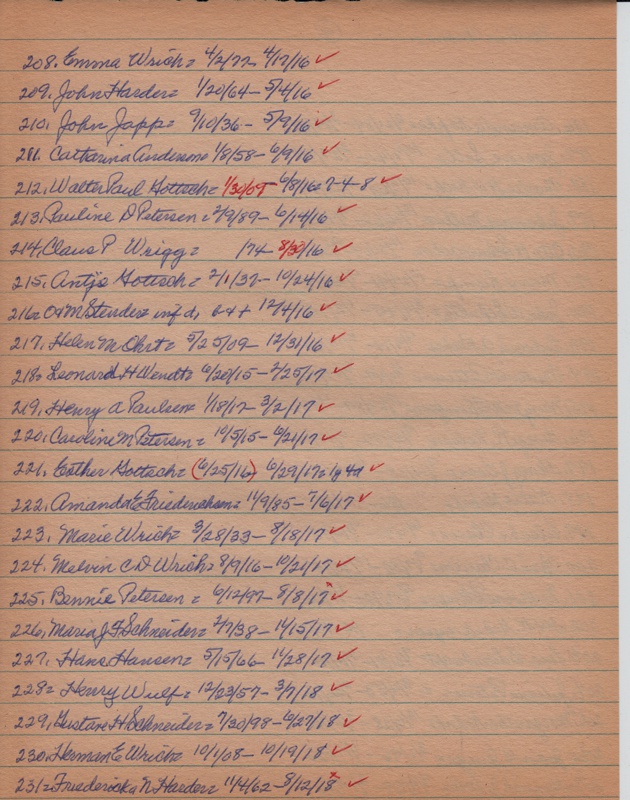 208. Emma Wrich = 4/2/72 4/17/16 ✓
209. John Harder = 1/20/64 - 5/4/16 ✓
210. John Japp = 9/10/36 - 5/9/16 ✓
211. Catharina Anderson = 1/8/58 - 6/9/16 ✓
212. Walter Paul Gottsch = 1/30/09 - 6/8/16 = 7-4-8 ✓
213. Pauline D Petersen = 2/9/89 - 6/14/16 ✓
214. Claus P Wrigg = /74 - 8/30/16 ✓
215. Antje Gottsch = 2/1/37 - 10/24/16 ✓
216 = O & M Stender = inf d, b & + 12/4/16 ✓
217. Helen M Ohrt = 5/25/09 - 12/31/16 ✓
218 = Leonard H Wendt = 6/20/15 - 2/25/17 ✓
219. Henry A Paulsen = 1/18/17 - 3/2/17 ✓
220. Caroline M Petersen = 10/5/15 - 6/21/17 ✓
221. Esther Gottsch = (6/25/16) 6/29/17 = 1y 4d ✓
222. Amanda E Friederichsen = 11/9/85 - 7/6/17 ✓
223. Marie Wrich = 3/28/33 - 8/18/17 ✓
224. Melvin C D Wrich = 8/9/16 - 10/21/17 ✓
225. Bennie Petersen = 6/12/97 - 8/8/17 x ✓
226. Maria J F Schneider = 2/7/38 - 11/15/17 ✓
227. Hans Hansen = 5/15/66 - 11/28/17 ✓
228 = Henry Wulf = 12/23/57 - 3/7/18 ✓
229. Gustave H Schneider = 7/30/98 - 6/27/18 ✓
230. Herman E Wrich = 10/1/08 - 10/19/18 ✓
231 = Friedericka N Harder = 11/4/62 - 8/12/18 x ✓